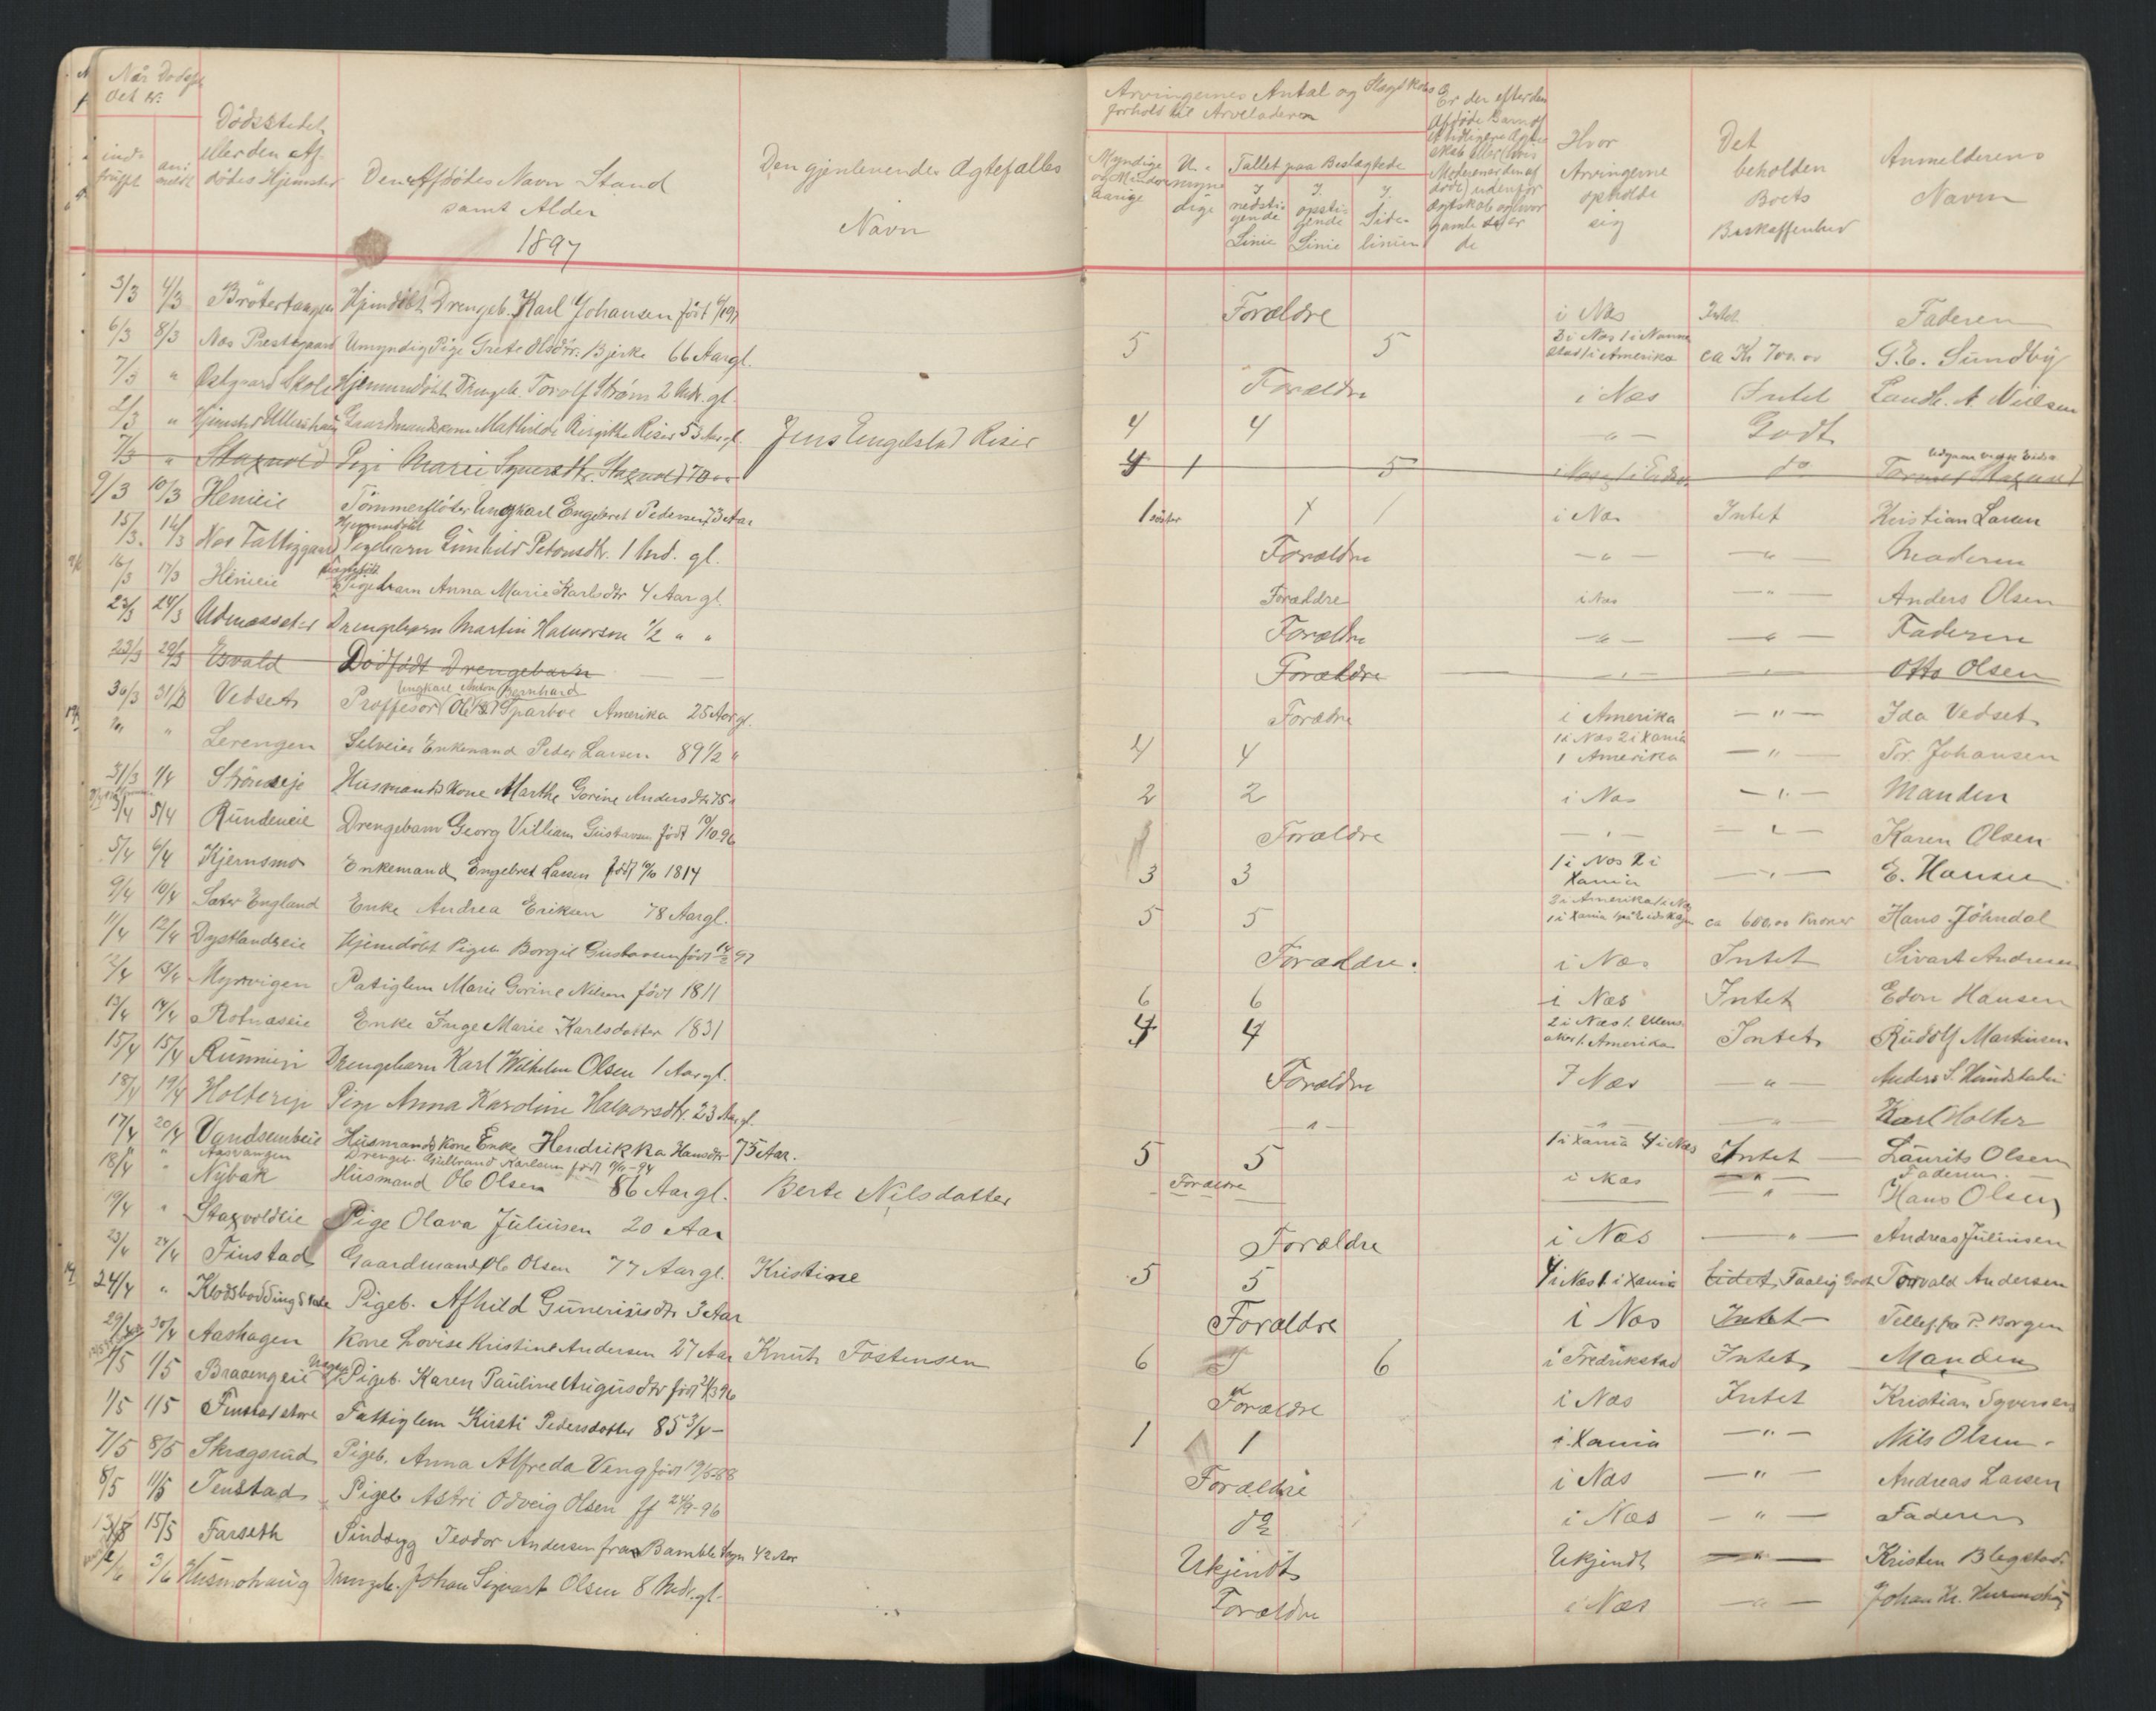 Når Dødsf.
det er:
ind-
truffet
an-
meldt
Dödsstedet
eller den Af-
dödes Hjemsted
Den Afdödes Navn Stand
samt Alder
1897
Den gjenlevende Ægtefælles
Navn
Arvingernes Antal og Slægtskabs
forhold til Arveladeren
Myndige
og Mindre-
aarige
U-
myn-
dige
Tallet paa Beslægtede
I
nedsti-
gende
Linie
I
opsti-
gende
Linie
I
Side-
linien
Er der efter den
Afdöde Barn af
tidligere Ægte-
skab eller (hvis
Moderen er den af
döde) udenfor
Ægteskab og hvor
gamle er
de
Hvor
Arvingerne
opholde
sig
Det
beholden
Boets
Beskaffenhed
Anmelderens
Navn
3/3 4/3 Brötertangen Hjemdöbt Drengeb. Karl Johansen født Forældre i Næs Intet Faderen
6/3 8/3 Næs Prestegaard Umyndig Pige Grete Olsdtr. Bjerke 66 Aar gl. 5 5 3 i Næs 1 i Nanne
stad 1 i Amerika ca Kr 700.00 G. E. Sundby
7/3 " Østgaard Skole Hjemmedöbt Drengeb. Torolf Strøm 2 Md. gl. Forældre i Næs Intet Landh. A. Nielsen
2/3 " Hjemsted Ullershaug Gaardmandskone Mathilde Birgitte Riser 53 Aar gl. Jens Engelstad Riser 4 4 - " - Godt
7/3 " Staxvold Pige Marie Syversdtr. Staxvold 70 4 1 5 do
9/3 10/3 Henieie Tömmerflöter Ungkarl Engebret Pedersen 73 Aar 1 söster 1 1 i Næs Intet Kristian Larsen
15/3 16/3 Næs Fattiggaard Hjemmedöbt Pigebarn Gunhild Petersdtr. 1 Md. gl. Forældre - " - - " - Moderen
16/3 17/3 Henieie Pigebarn Anna Marie Karlsdtr 4 Aar gl. Forældre i Næs - " - Anders Olsen
23/3 24/3 Udnæsseter Drengebarn Martin Halvorsen 1/2 " " Forældre - " - - " - Faderen
23/3 29/3 Esvald Dödfödt Drengebarn Forældre - " - " Otto Olsen
30/3 31/3 Vedset Ungkarl Anton Bernhard
Proffesor Sparboe Amerika 25 Aar gl. Forældre i Amerika - " - Ida Vedset
" " Lerengen Selveier Enkemand Peder Larsen 89 1/2 " 4 4 1 i Næs 2 i Xania
1 Amerika - " - Tor. Johansen
31/3 1/4 Strönseje Husmandskone Marthe Gorine Andersdtr 75 " 2 2 i Næs - " - Manden
3/4 5/4 Rundeneie Drengebarn Georg Villiam Gustavsen født 19/10 96 Forældre - " - - " - Karen Olsen
5/4 6/4 Kjernsmo Enkemand Engebret Larsen født 1814 3 3 1 i Næs 2 i
Xania - " - E. Hansen
9/4 10/4 Sæter England Enke Andrea Eriksen 78 Aar gl. 5 5 3 i Amerika 1 i Næs
1 i Xania ca 600,00 Kroner Hans Jöhndal
11/4 12/4 Dystlandseie Hjemdöbt Pigeb. Borgil Gustavsen født 14/2 97 Forældre. i Næs Intet Sivart Andresen
12/4 13/4 Myrvigen Fatiglem Marie Gorine Nilsen født 1811 6 6 i Næs Intet Edon Hansen
13/4 14/4 Rotnæseie Enke Inge Marie Karlsdatter 1831 4 4 2 i Næs 1. Ullens-
aker 1. Amerika Intet Rudolf Martinsen
15/4 15/4 Runnieie Drengebarn Karl Wilhelm Olsen 1 Aar gl. Forældre I Næs " - Anders S. Hundstadei
18/4 19/4 Holtereie Pige Anna Karoline Halvorsdtr. 23 Aar gl. - " - " - " - Karl Holter
17/4 20/4 Vundsembeie Husmands Kone Enke Hendrikka Hansdtr 75 Aar. 5 5 1 i Xania 4 i Næs Intet Laurits Olsen
" " Aasvangen Drengeb. Gulbrand Karlsen født Forældre i Næs - " - Faderen
18/4 " Nybak Husmand Ole Olsen 86 Aar gl. Berte Nilsdatter - " - Hans Olsen
19/4 " Staxvoldeie Pige Olava Juliusen 20 Aar Forældre i Næs - " - Andreas Juliusen
23/4 24/4 Finstad Gaardmand Ole Olsen 77 Aar gl. Kristine 5 5 4 i Næs 1 i Xania Lidet, Taalig Godt Torvald Andersen
24/4 " Klodsbödding Skole Pigeb. Afhild Gunneriusdtr 3 Aar Forældre i Næs Intet - P. Borgen
29/4 30/4 Aashagen Kone Lovise Kristine Andersen 27 Aar Knut Tostensen 6 6 i Fredrikstad Intet Manden
1/5 1/5 Braaengeie Pigeb. Karen Pauline Augusdtr født 21/3 96 Forældre i Næs Intet Kristian Syversen
1/5 1/5 Finstad store Fattiglem Kirsti Pedersdatter 85 3/4 - 1 1 i Xania - " - Nils Olsen
7/5 8/5 Skragsrud Pigeb. Anna Alfreda Veng født 19/5 88 Forældre i Næs - " - Andreas Larsen
8/5 11/5 Tenstad Pigeb Astri Odveig Olsen ff 24/9-96 do i Næs - " - Faderen
13/5 15/5 Farseth Sindsyg Teodor Andersen fra Bamble Sogn 42 Aar Ukjendt Ukjendt - " - Kristen Blegstad.
2/6 3/6 Husmohaug Drengeb. Johan Sigvart Olsen 8 Md. gl. Forældre i Næs - " - Johan Kr.